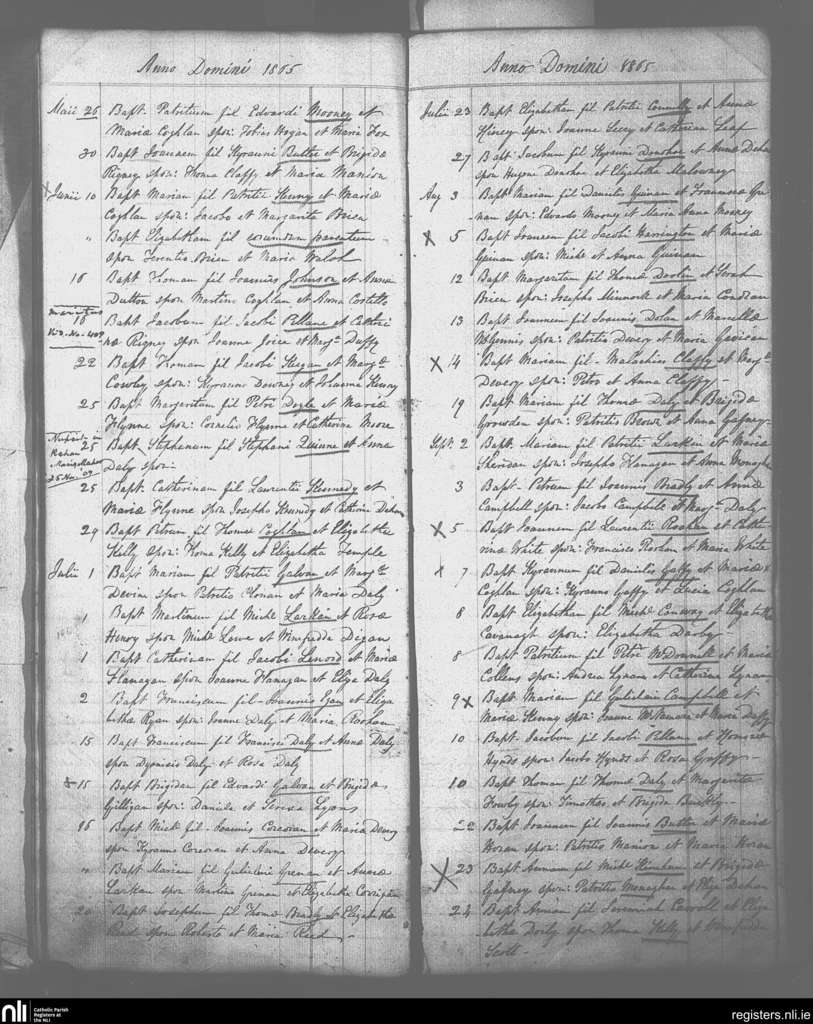 Anno Domini 1865
Maii 26 Bapt. Patritium fil Edvardi Mooney et
Mariæ Coghlan spon: Tobias Hogan et Maria Fox
30 Bapt Joannem fil Kyranii Butler et Brigidæ
Rigney spon: Thoma Claffy et Maria Manion
x Junii 10 Bapt Mariam fil Patritii Kenny et Mariæ
Coghlan spon: Jacobo et Margarita Brien
" Bapt Elizabetham fil eorumdem parentum
spon Terentio Brien et Maria Walsh
16 Bapt Thomam fil Joannis Johnson et Annæ
Dutton spon Martino Coghlan et Anna Costello
16 Bapt Jacobum fil Jacobi Pillane et Catheri
næ Rigney spon Joanne Joice et Margta Duffy
22 Bapt Thomam fil Jacobi Keegan et Margtæ
Cowley spon: Kyranno Downey et Johanna Kenny
25 Bapt Margaritam fil Petri Doyle et Mariæ
Flynne spon: Cornelio Flynne et Catherina Moore
25 Bapt Stephanum fil Stephani Quinne et Annæ
Daly spon:
25 Bapt Catherinam fil Laurentii Kennedy et
Mariæ Flynne spon Josepho Kennedy et Catherina
29 Bapt Petrum fil Thomæ Coghlan et Elizabethæ
Kelly spon: Thoma Kelly et Elizabetha Temple
Julii 1 Bapt Mariam fil Patritii Galvan et Margtæ
Devine spon Patritio Horan et Maria Daly
1 Bapt Martinum fil Michl Larkin et Rosæ
Henry spon Michl Lowe et Winifrida Digan
1 Bapt Catherinam fil Jacobi Lenord et Mariæ
Flanagan spon Joanne Flanagan et Eliza Daly
2 Bapt Franciscum fil Joannis Egan et Eliza
bethæ Ryan spon: Joanne Daly et Maria Rohan
15 Bapt Franciscum fil Francisci Daly et Annæ Daly
spon Dyonisio Daly et Rosa Daly
x 15 Bapt Brigidam fil Edvardi Galvan et Brigidæ
Gilligan spon: Daniele et Teresa Lyons
16 Bapt Michl fil Joannis Corcoran et Mariæ Devery
spon Kyranno Corcoran et Anna Devery
" Bapt Mariam fil Gulielmi Grenan et Annæ
Larkan spon Martino Grenan et Elizabetha Corrigan
20 Bapt Josephum fil Thomæ Bradly et Elizabethæ
Reed spon Roberto et Maria Reed
Anno Domini 1865
Julii 23 Bapt Elizabetham fil Patritii Connolly et Annæ
Hiney spon: Joanne Lecey et Catherina Leaf
27 Bapt: Jacobum fil Kyranni Doorhan et Annæ Dehan
spon Hugone Doorhan et Elizabetha Malowney
Aug 3 Bapt Mariam fil Danielis Guinan et Franciscæ Gui
nan spon: Edvardo Mooney et Maria Anna Mooney
x 5 Bapt Joannem fil Jacobi Warrington et Mariæ
Guinan spon: Michl et Anna Guinan
12 Bapt Margaritam fil Thomæ Doolin et Sarah
Brien spon: Josepho Minnock et Maria Condran
13 Bapt Joannem fil Joannis Dolan et Marcellæ
McGennis spon: Patritio Devery et Maria
x 14 Bapt Mariam fil Malachiæ Claffy et Margtæ
Devery spon: Petro et Anna Claffy
19 Bapt Mariam fil Thomæ Daly et Brigidæ
Growden spon: Patritio Brown et Anna Gafney
Sept. 2 Bapt. Mariam fil Patritii Larkin et Mariæ
Sheridan spon: Josepho Flanagan et Anna Monaghan
3 Bapt. Petrum fil Joannis Bradly et Annæ
Campbell spon: Jacobo Campbell et Margta Daly
x 5 Bapt Joannem fil Laurentii Rohan et Cathe
rinæ White spon: Francisco Rohan et Maria White
x 7 Bapt Kyrannum fil Danielis Gaffy et Mariæ
Coghlan spon: Kyranno Gaffy et Lucia Coghlan
8 Bapt Elizabetham fil Michl Conway et Elizabethæ
Cavanagh spon: Elizabetha Darby
8 Bapt Patritium fil Petri McDonnell et Mariæ
Collens spon: Andrea Lynam et Catherina Lynam
9 x Bapt Mariam fil Gulielmi Campbell et
Mariæ Kenny spon: Joanne McNamara et Maria Daffy
10 Bapt. Jacobum fil Jacobi Pillane et Honoræ
Hynds spon: Jacobo Hynds et Rosa Gaffy
10 Bapt Thomam fil Thomæ Daly et Margaritæ
spon: Timotheo et Brigida Buckly
22 Bapt Joannem fil Joannis Butler et Mariæ
Horan spon: Patritio Manion et Maria Horan
x 23 Bapt Annam fil Michl Kinahan et Brigidæ
Gafney spon: Patritio Monaghan et Eliza Dehan
24 Bapt Annam fil Jeremiah Carroll et Eliza
bethæ Dorly spon Thoma Kelly et Winifrida
Scott
nli Catholic Parish
Registers at
the NLI
registers.nli.ie